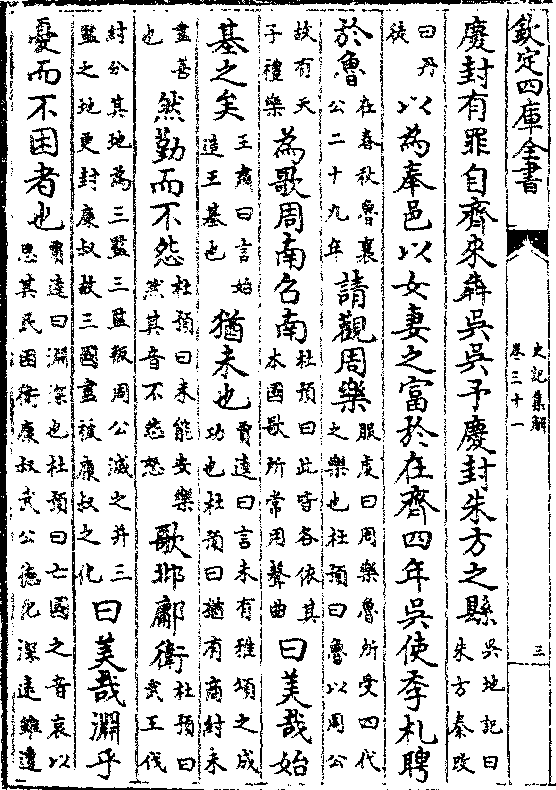 欽定四庫全書
史記集解
卷三十一
三
慶封有罪自齊來犇吳吳予慶封朱方之縣吳地記曰朱方秦改
曰丹徒以為奉邑以女妻之富於在齊四年吳使季札聘
於魯在春秋魯襄公二十九年請觀周樂服虔曰周樂魯所受四代之樂也杜預曰魯以周公
故有天子禮樂為歌周南召南杜預曰此皆各依其本國歌所常用聲曲曰美哉始
基之矣王肅曰言始造王基也猶未也賈逵曰言未有雅頌之成功也杜預曰猶有商紂未
盡善也然勤而不怨杜預曰未能安樂然其音不怨怒歌邶鄘衛杜預曰武王伐
紂分其地為三監三監叛周公滅之并三監之地更封康叔故三國盡被康叔之化曰美哉淵乎
憂而不困者也賈逵曰淵深也杜預曰亡國之音哀以思其民困衛康叔武公德化深遠雖遭